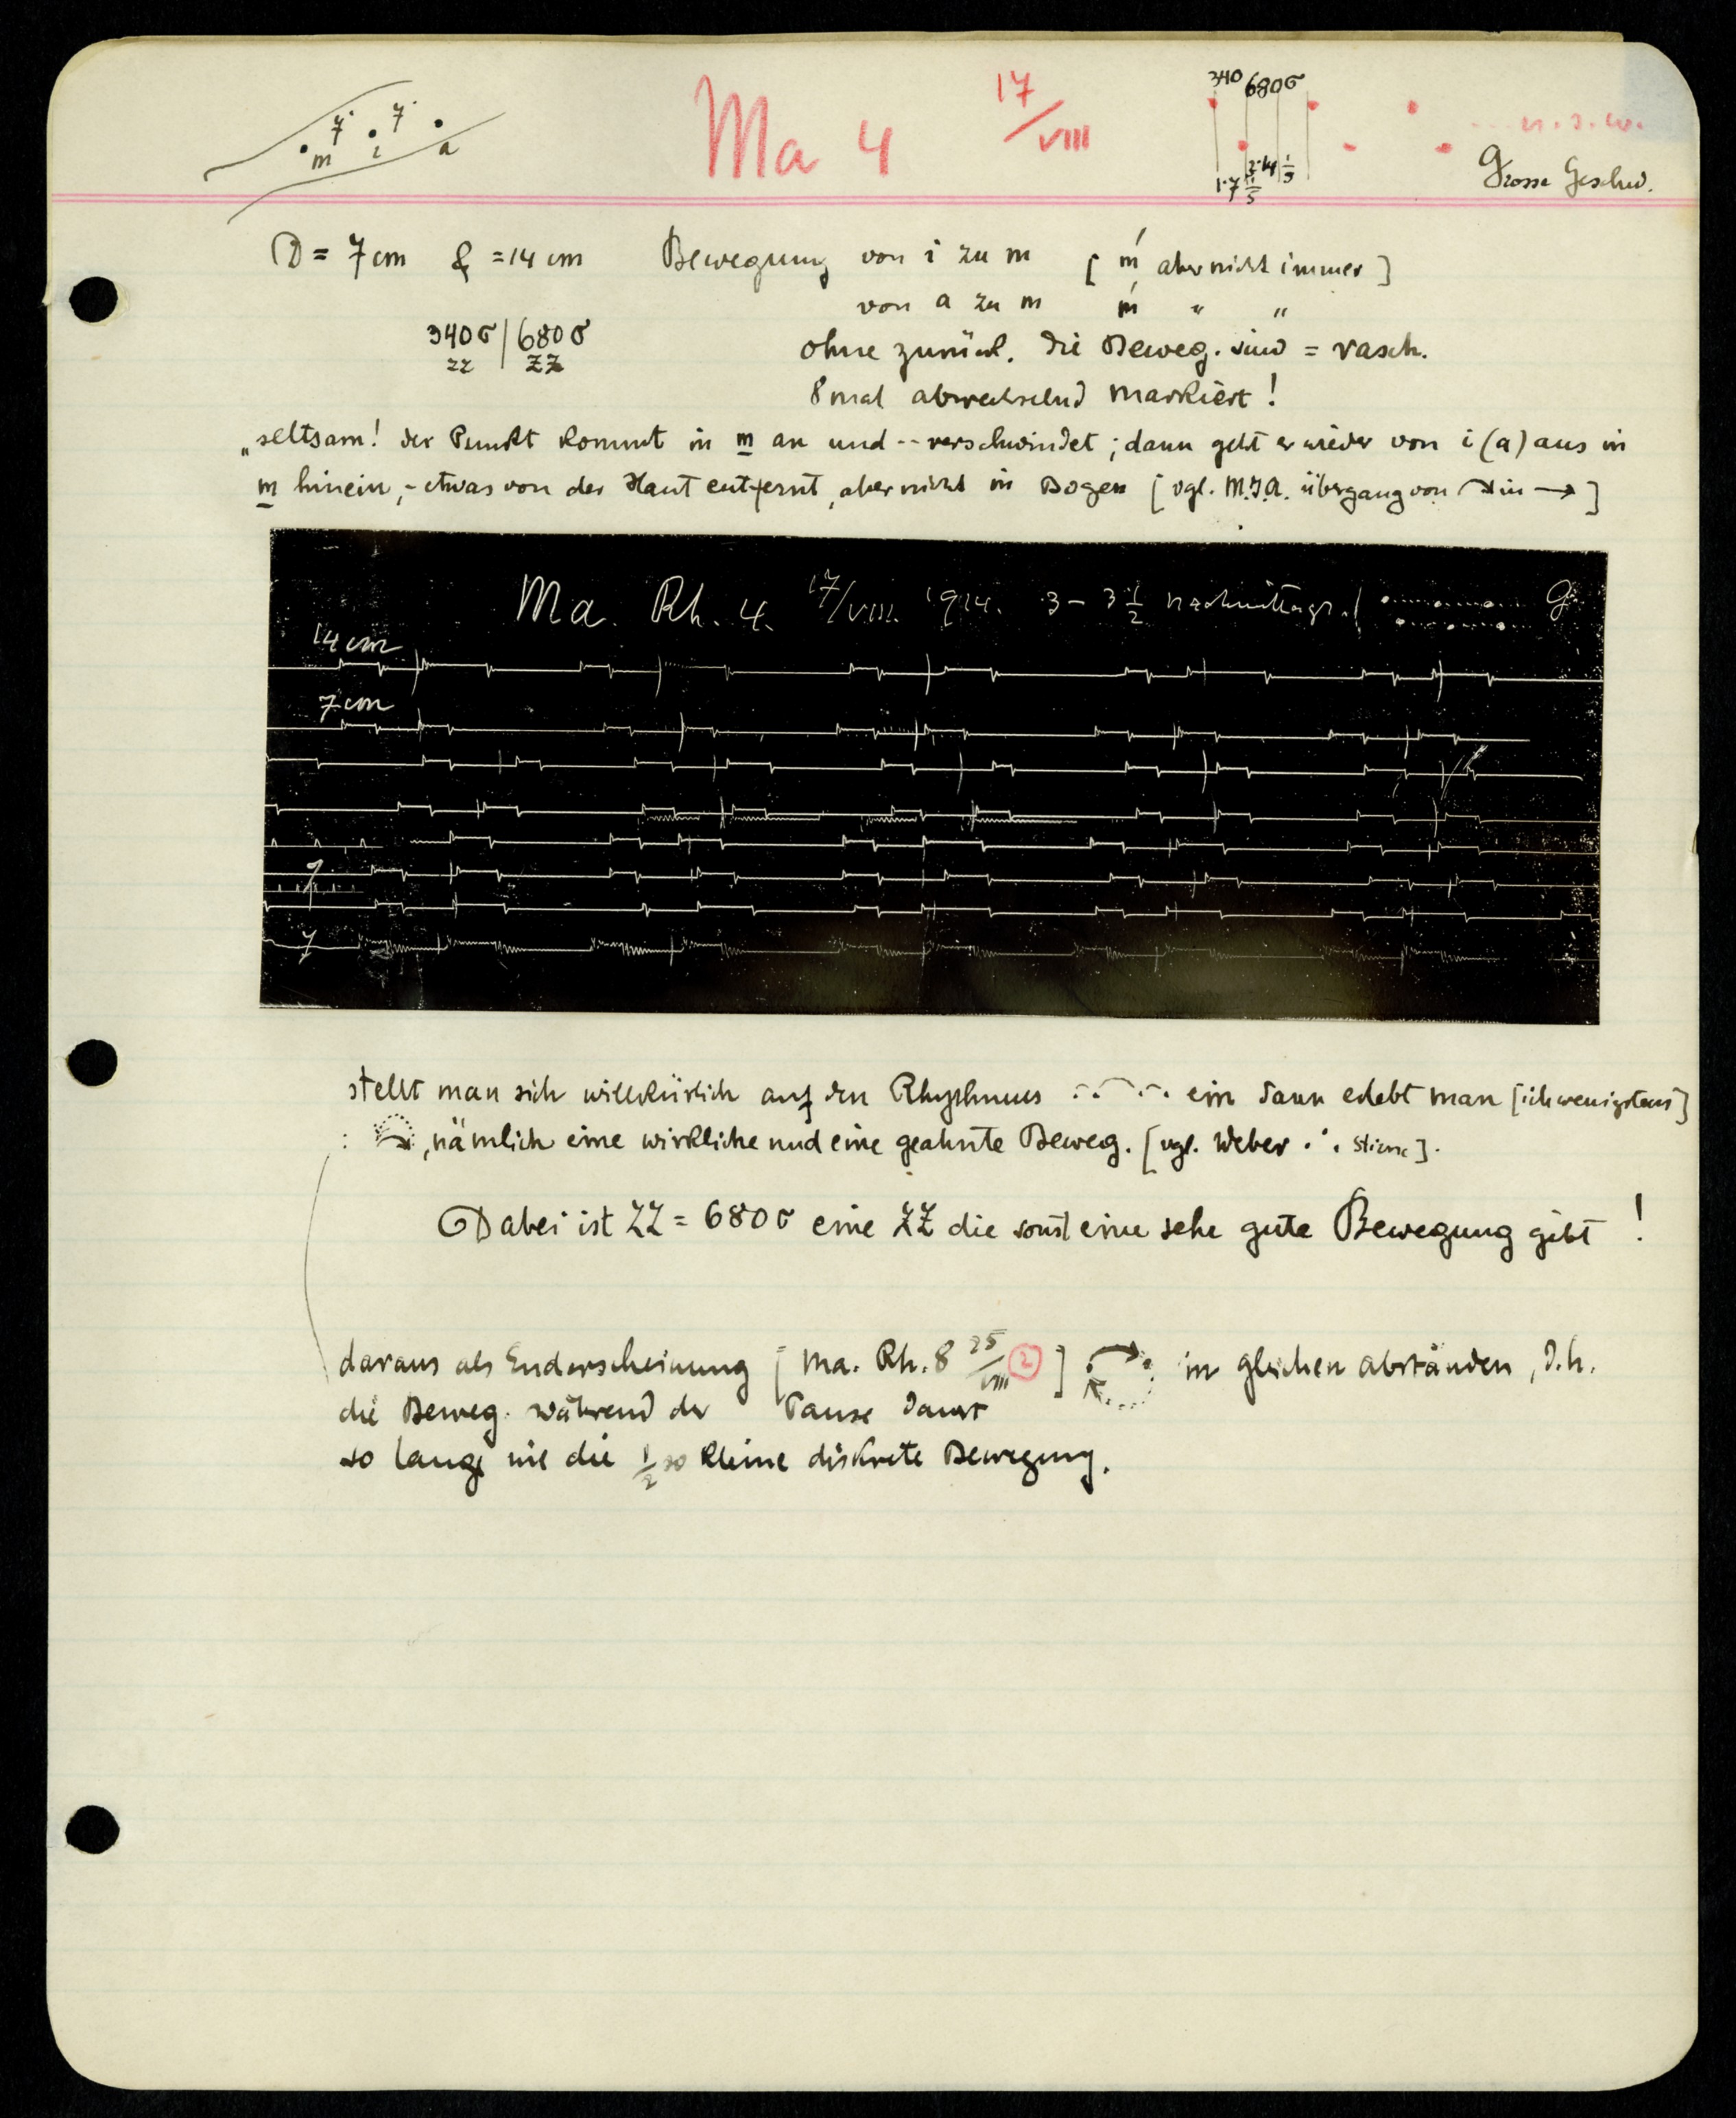 7 7
m i a
Ma 4 17/VIII
340 680σ
u. s. w.
Grosse Geschw.
D = 7 cm & = 14 cm Bewegung von i zu m [ ḿ aber nicht immer ]
von a zu m ḿ " "
340σ | 680σ
zz ZZ
ohne zurück. Die Beweg. sind = rasch.
8 mal abwechselnd markiert!
„seltsam! der Punkt kommt in m an und -- verschwindet; dann geht er wieder von i (a) aus in
m hinein, - etwas von der Haut entfernt, aber nicht in Bogen [ vgl. M.J.A. übergang von ⤵ in → ]
Ma. Rh. 4. 17/VIII. 1914. 3 - 3 1/2 nachmittags.
14 cm
7 cm
7
stellt man sich willkürlich auf den Rhythmus ein dann erlebt man [ich wenigstens]
: , nämlich eine wirkliche und eine geahnte Beweg. [vgl. Weber Stirne].
Dabei ist ZZ = 680σ eine ZZ die sonst eine sehr gute Bewegung gibt!
daraus als Enderscheinung [ Ma. Rh. 8 25/VIII (2) ] in gleichen abständen, d.h.
die Beweg. während der Pause dauert
so lange wie die 1/2 so kleine diskrete Bewegung.